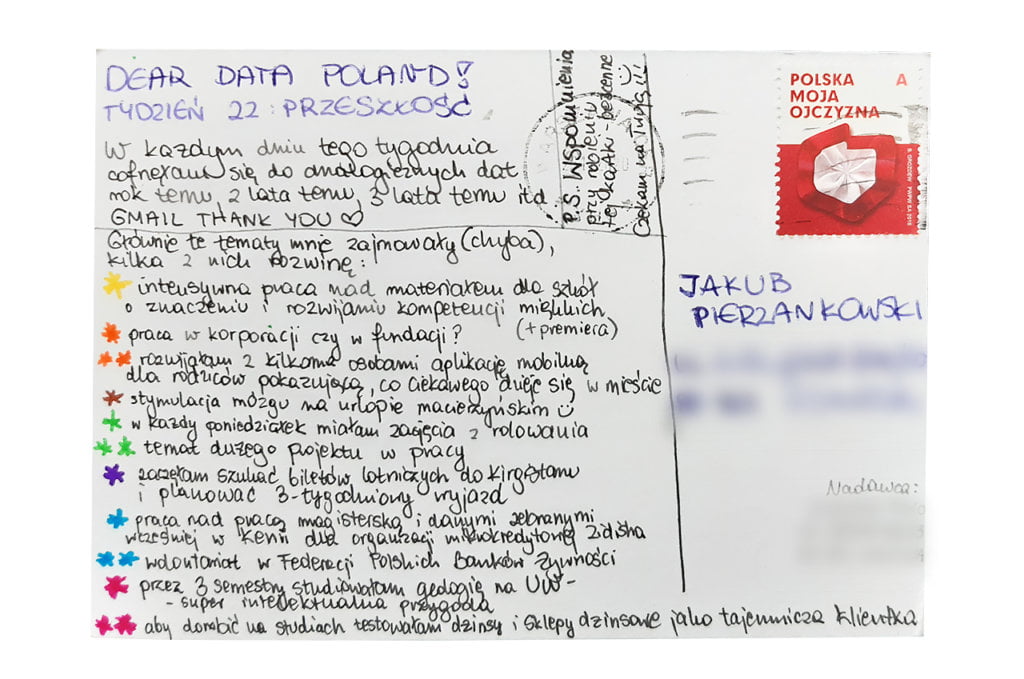 DEAR DATA POLAND!
TYDZIEŃ 22: PRZESZŁOŚĆ
W każdym dniu tego tygodnia
cofnęłam się do analogicznych dat
rok temu, 2 lata temu, 3 lata temu itd
GMAIL THANK YOU ♡
Głównie te tematy mnie zajmowały (chyba),
kilka z nich rozwinę:
intensywna praca nad materiałem dla szkół
o znaczeniu i rozwijaniu kompetencji miękkich
(+premiera)
praca w korporacji czy w fundacji?
rozwijałam z kilkoma osobami aplikację mobilną
dla rodziców pokazującą, co ciekawego dzieje się w mieście
stymulacja mózgu na urlopie macierzyńskim
w każdy poniedziałek miałam zajęcia z rolowania
temat dużego projektu w pracy
zaczęłam szukać biletów lotniczych do Kirgistanu
i planować 3-tygodniowy wyjazd
praca nad pracą magisterską i danymi zebranymi
wcześniej w Kenii dla organizacji mikrokredytowej Zidisha
wolontariat w Federacji Polskich Banków Żywności
przez 3 semestry studiowałam geologię na UW-
- super intelektualna przygoda
aby dorobić na studiach testowałam dżinsy i sklepy dżinsowe jako tajemnicza klientka
P.S. Wspomnienia
przy robieniu
tej kartki - bezcenne
Czekam na Twoją!!!
POLSKA A
MOJA
OJCZYZNA
JAKUB
PIERZANKOWSKI
Nadawca: